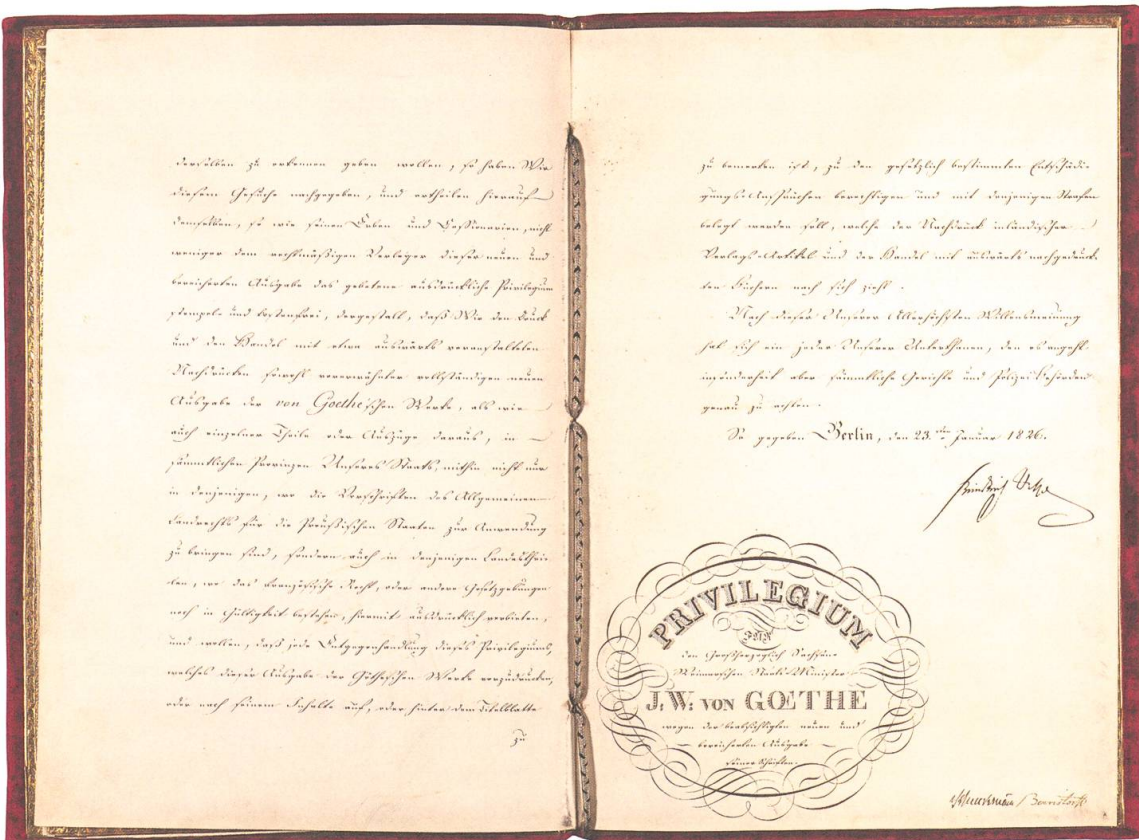 derselben zu erkennen geben wollen, so haben Wir
diesem Gesuche nachgegeben, und ertheilen hierauf
demselben, so wie seinen Erben und Cessionarien, nicht
weniger dem rechtmäßigen Verleger dieser neuen und
bereicherten Ausgabe das gebetene ausdrückliche Privilegium
stempel- und kostenfrei, dergestalt, daß Wir den Druck
und den Handel mit etwa auswärts veranstalteten
Nachdrucken sowohl vorerwähnter vollständigen neuen
Ausgabe der von Goethe'schen Werke, als wie
auch einzelner Theile oder Auszüge daraus, in
sämmtlichen Provinzen Unseres Staats, mithin nicht nur
in denjenigen, wo die Vorschriften des Allgemeinen
Landrechts für die Preußischen Staaten zur Anwendung
zu bringen sind, sondern auch in denjenigen Landesthei-
len, wo das französische Recht, oder andere Gesetzgebungen
noch in Gültigkeit bestehen, hiermit ausdrücklich verbieten,
und wollen, daß jede Entgegenhandlung dieses Privilegiums,
welches dieser Ausgabe der Götheschen Werke vorzudrucken,
oder nach seinem Inhalte auf, oder hinter dem Titelblatte
zu
zu bemerken ist, zu den gesetzlich bestimmten Entschädi-
gungs-Ansprüchen berechtigen und mit denjenigen Strafen
belegt werden soll, welche der Nachdruck inländischer
Verlags-Artikel und der Handel mit auswärts nachgedruck-
ten Büchern nach sich zieht.
Nach dieser Unserer Allerhöchsten Willensmeinung
hat sich ein jeder Unserer Unterthanen, den es angeht
insonderheit aber sämmtliche Gerichte und Polizei-Behörden
genau zu achten.
So gegeben Berlin, den 23. ten Januar 1826.
PRIVILEGIUM
FÜR
den Großherzoglich Sachsen-
Weimarschen Staats-Minister
J: W: VON GŒTHE
wegen der beabsichtigten neuen und
bereicherten Ausgabe
seiner Schriften.
Schuckmann Bernstorff